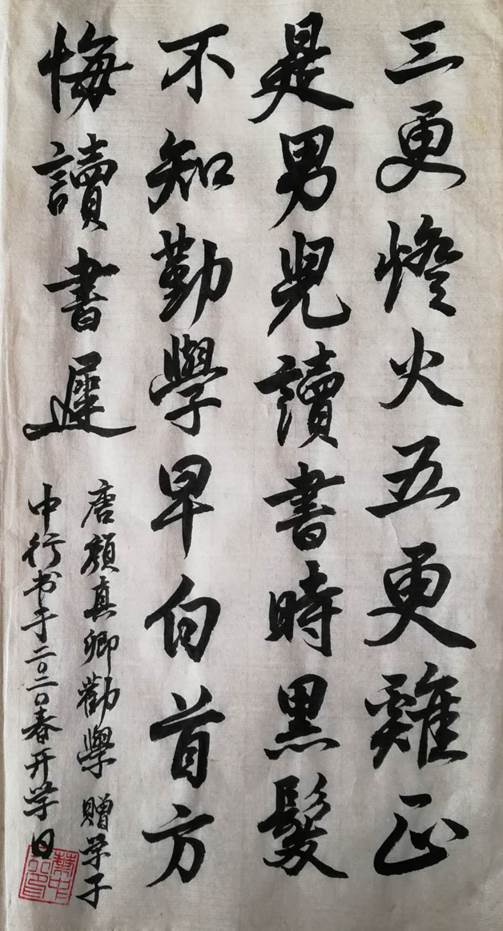 三更燈火五更雞正
是男兒讀書時黑髮
不知勤學早白首方
悔讀書遲
唐顏真卿勸學 贈学子
中行书于二〇二〇春开学日